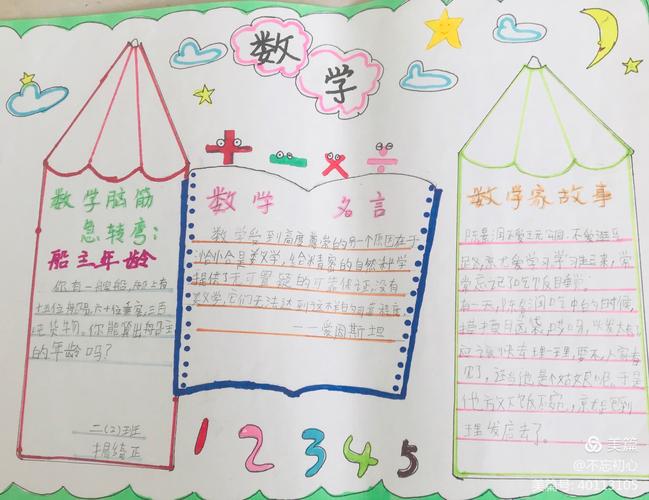 数学
数学脑筋
急转弯：
船主年龄
你有一艘船，船上有
十五位船员，六十位乘客，三百
吨货物，你能算出船主
的年龄吗？
二（2）班
数学 名言
数学受到高度尊崇的另一个原因在于
恰恰是数学，给精密的自然科学
提供了无可置疑的可靠保证，没有
数学，它们无法达到这样的可靠程度
——爱因斯坦
数学家故事
陈景润不爱玩公园，不爱逛马
路，就爱学习。学习起来，常
常忘记了吃饭睡觉。
有一天，陈景润吃中饭的时候，
摸摸脑袋，哎呀，头发太长了
应该快去理一理，要不，人家看
见了，还当他是个姑娘呢。于是
他放下饭碗，就跑到
理发店去了。
1 2 3 4 5
美篇
@不忘初心
美篇号：40113105